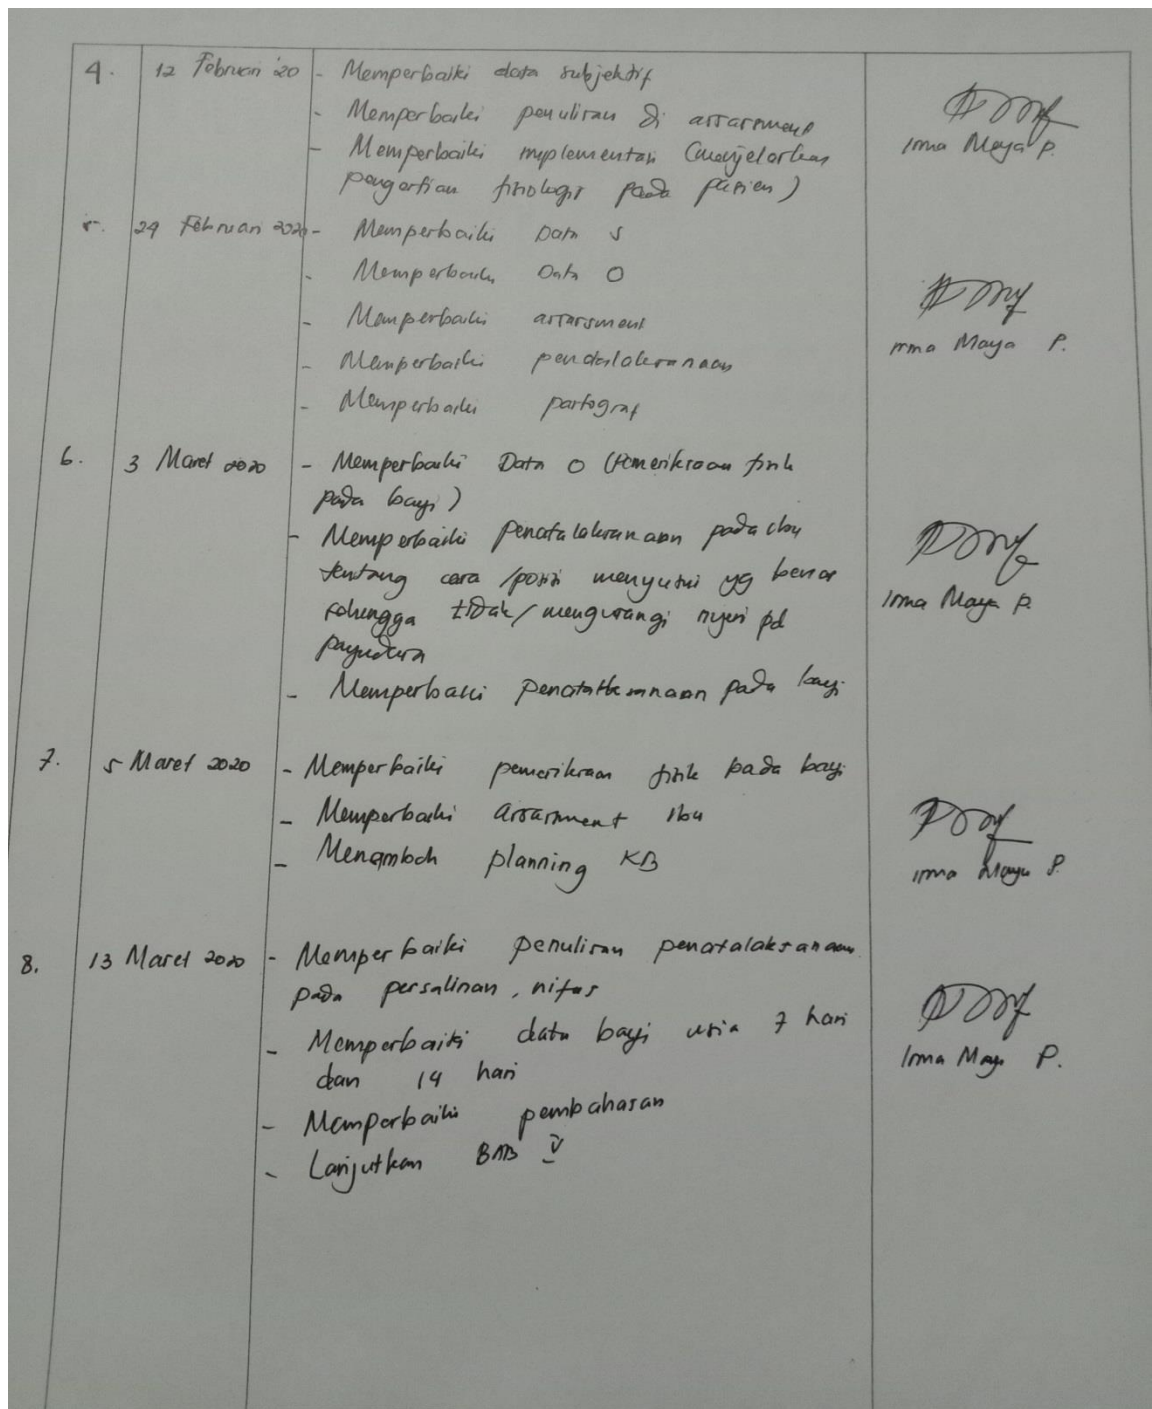 4. 12 Februari '20 - Memperbaiki data subjektif
- Memperbaiki penulisan di assasment
- Memperbaiki implementasi (menjelaskan
pengertian fisiologis pada pasien)
Irma Maya P.
5. 24 Februari 2020 - Memperbaiki Data S
- Memperbaiki Data O
- Memperbaiki assasment
- Memperbaiki
- Memperbaiki partograf
Irma Maya P.
6. 3 Maret 2020 - Memperbaiki Data O (Pemeriksaan fisik
pada bayi)
- Memperbaiki penatalaksanaan pada ibu
tentang cara/posisi menyusui yg benar
sehingga tidak/mengurangi nyeri pd
payudara
- Memperbaiki penatalaksanaan pada bayi
Irma Maya P.
7. 5 Maret 2020 - Memperbaiki pemeriksaan fisik pada bayi
- Memperbaiki assasment ibu
- Menambah planning KB
Irma Maya P.
8. 13 Maret 2020 - Memperbaiki penulisan penatalaksanaan
pada persalinan, nifas
- Memperbaiki data bayi usia 7 hari
dan 14 hari
- Memperbaiki pembahasan
- Lanjutkan BAB V
Irma Maya P.